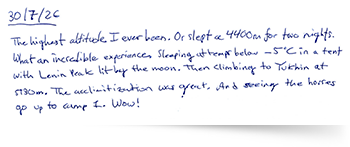 30/7/26
The highest altitude I ever been. Or slept @ 4400m for two nights.
What an incredible experience. Sleeping at temps below -5°C in a tent
with Lenin Peak lit by the moon. Then climbing to Yukhin at
5130m. The acclimitization was great. And seeing the horses
go up to camp 1. Wow!